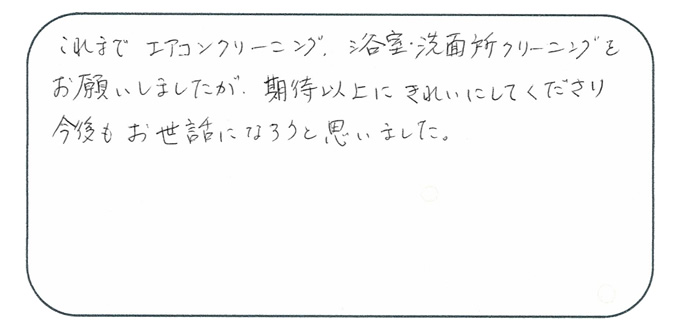 これまで エアコンクリーニング、浴室・洗面所クリーニングを
お願いしましたが、期待以上に きれいにしてくださり
今後も お世話になろうと思いました。